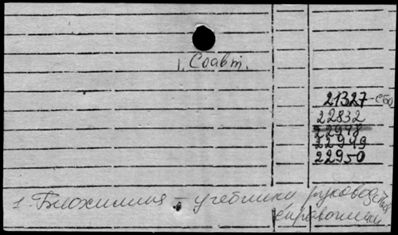 1. Соавт.
21327-СБО
22832
22948
22949
22950
1. Биохимия – учебники руководства
справочники